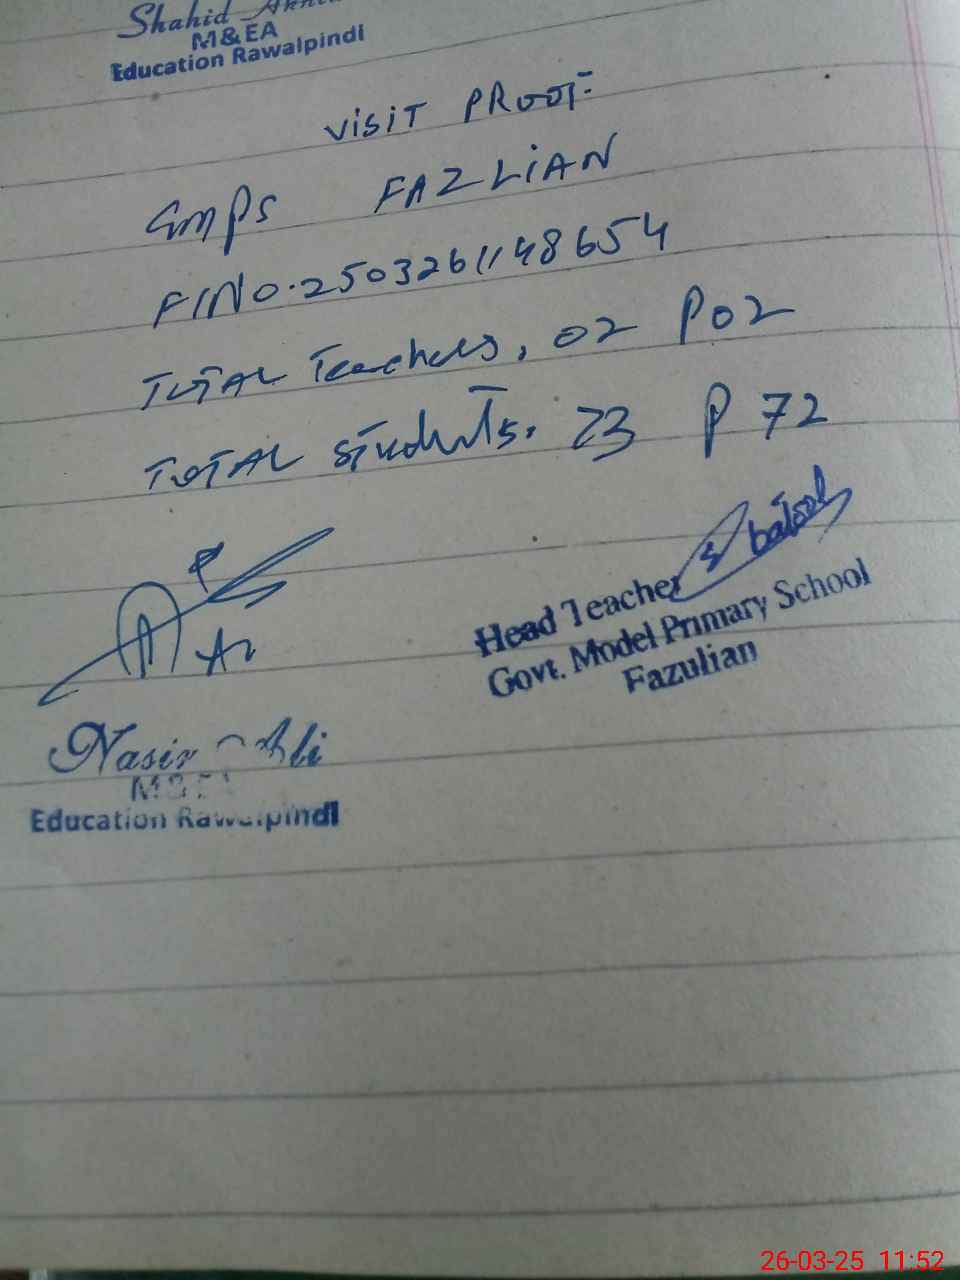 Shahid
M&EA
Education Rawalpindi
VISIT PROOF:
GMPS FAZLIAN
FINO.2503261148654
TOTAL Teachers, 02 P02
TOTAL students. 73 P 72
batool
Head Teacher
Govt. Model Primary School
Fazulian
Nasir Ali
M&EA
Education Rawalpindi
26-03-25 11:52